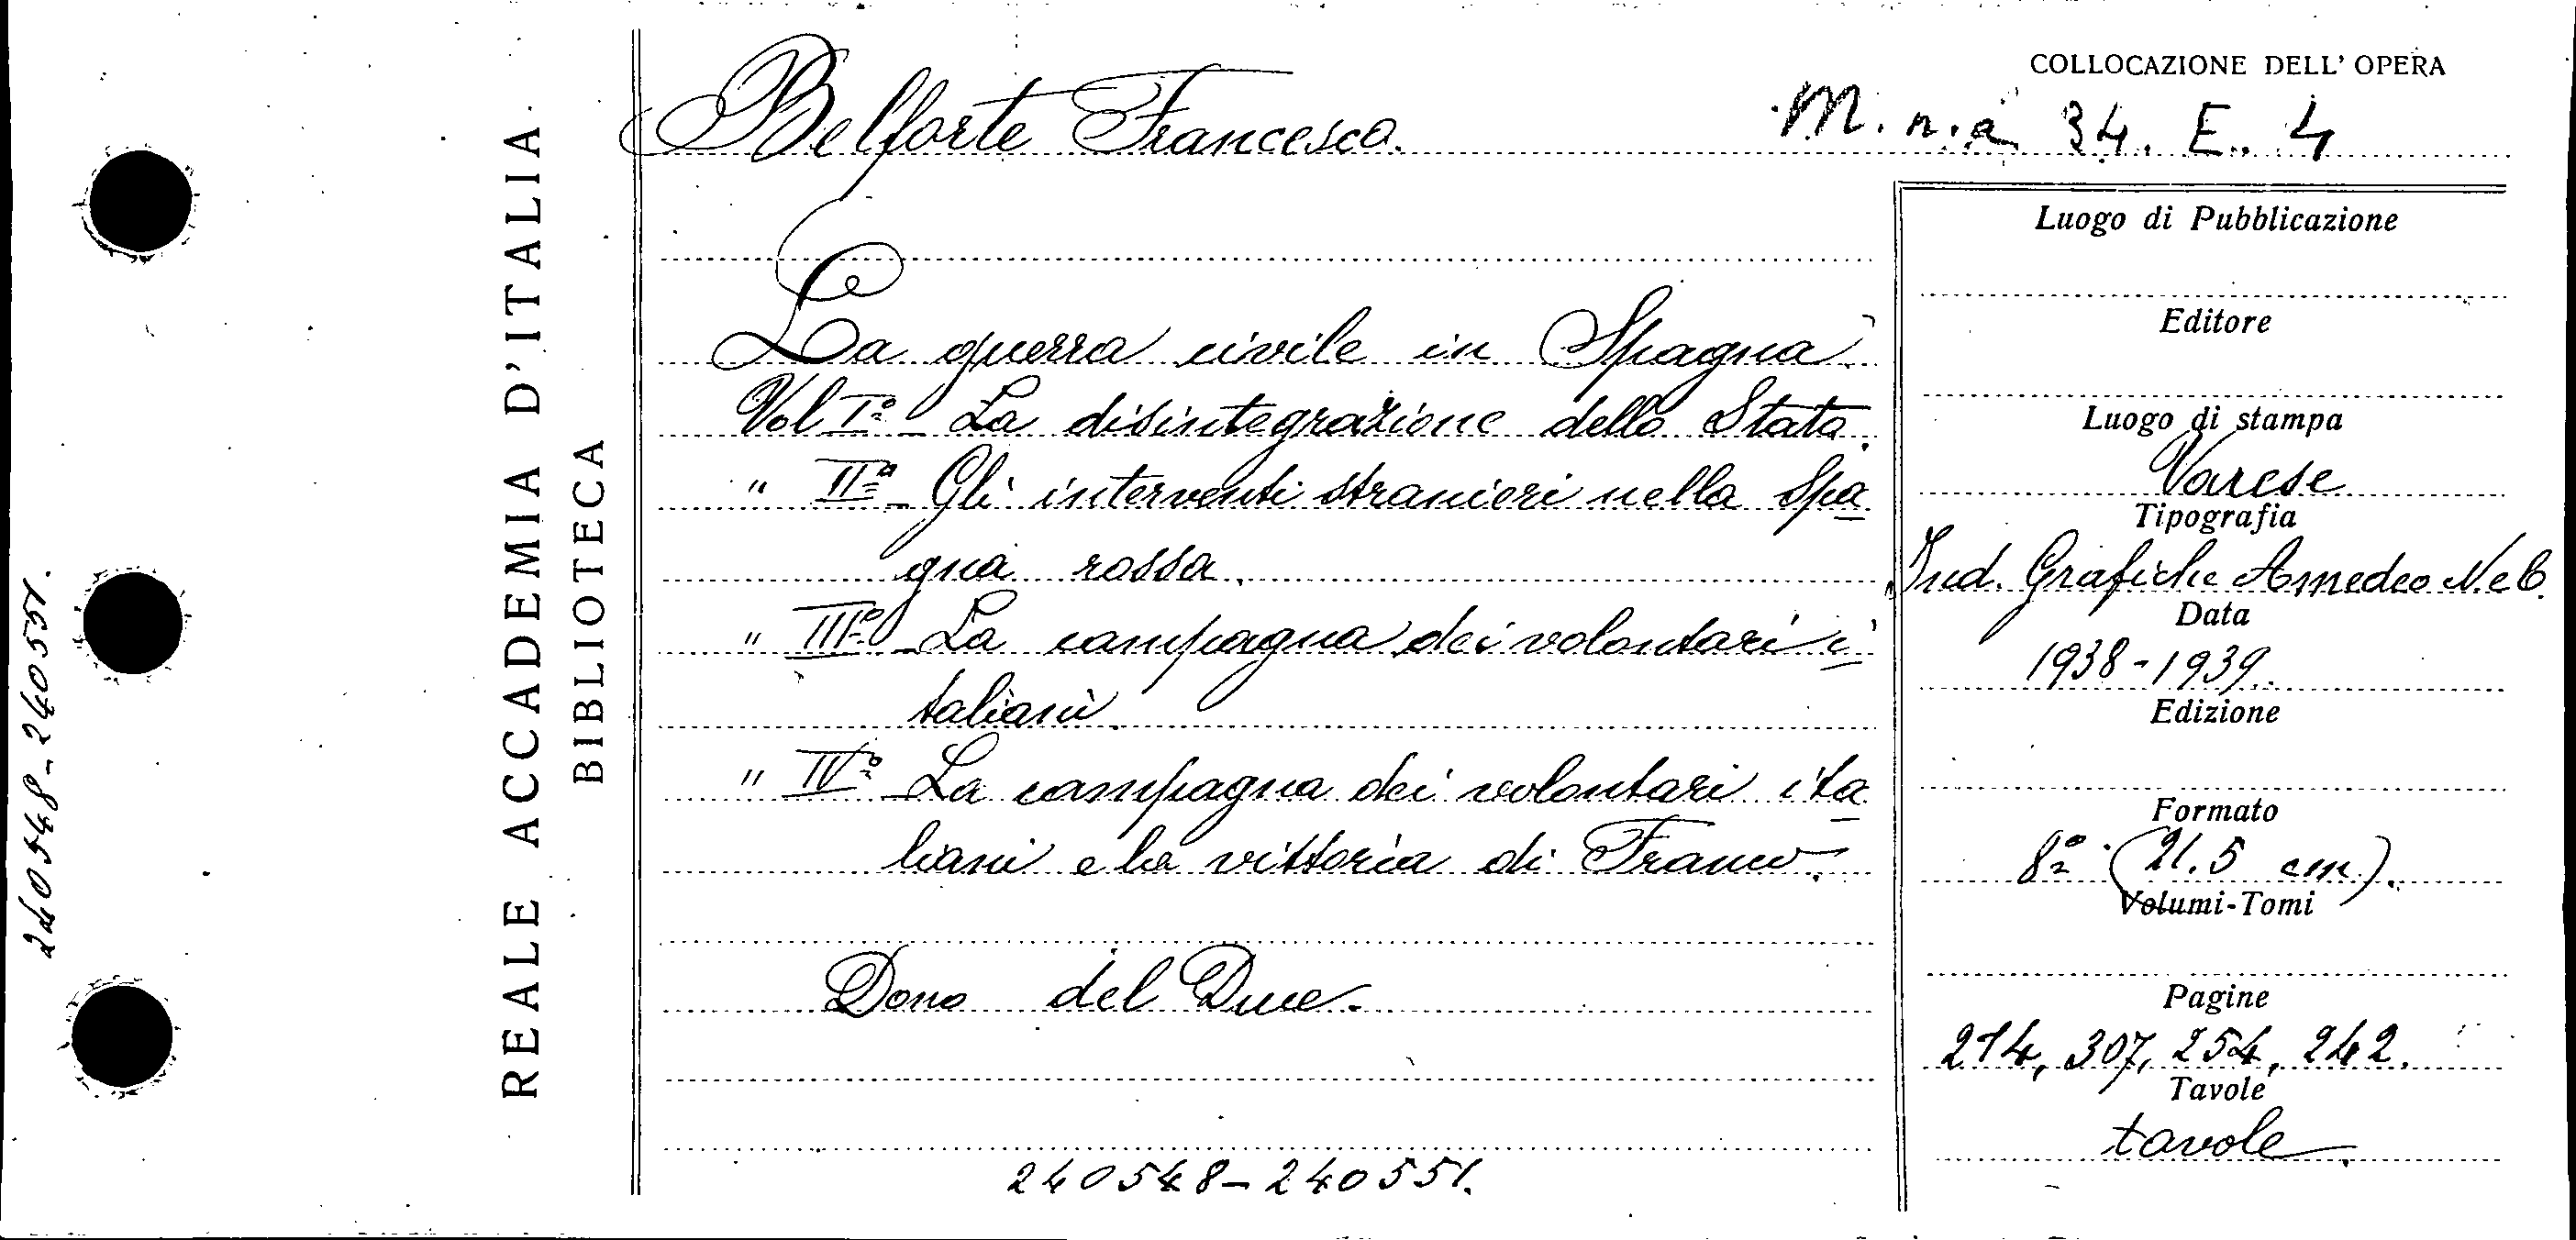 COLLOCAZIONE DELL' OPERA
Belforte Francesco.
M. n. a 34. E. 4
La guerra civile in Spagna.
Vol I° - La disintegrazione dello Stato.
" II° - Gli interventi stranieri nella Spa
gna rossa.
" III° - La campagna dei volontari i
taliani.
" IV° - La campagna dei volontari ita
liani e la vittoria di Franco.
Dono del Duce.
240548-240551.
Luogo di Pubblicazione
Editore
Luogo di stampa
Varese
Tipografia
Ind. Grafiche Amedeo N. e C.
Data
1938-1939.
Edizione
Formato
8° (21.5 cm).
Volumi-Tomi
Pagine
214, 307, 254, 242.
Tavole
tavole.
REALE ACCADEMIA D'ITALIA
BIBLIOTECA
240548-240551.